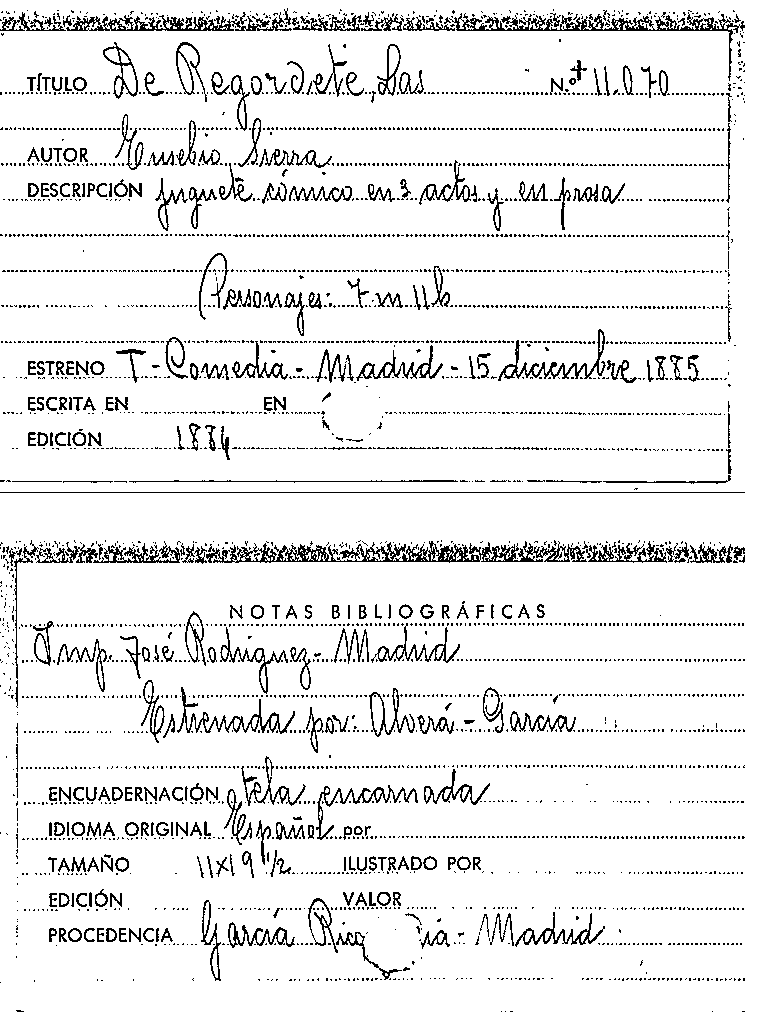 TÍTULO De Regordeté, Las N.º+ 11.070
AUTOR Eusebio Sierra
DESCRIPCIÓN juguete cómico en 3 actos y en prosa
Personajes: 7 m 11 h
ESTRENO T-Comedia - Madrid - 15 diciembre 1885
ESCRITA EN EN
EDICIÓN 1886
NOTAS BIBLIOGRÁFICAS
Imp. José Rodriguez - Madrid
Estrenada por: Alverá - García
ENCUADERNACIÓN tela encarnada
IDIOMA ORIGINAL Español por
TAMAÑO 11x19 1/2 ILUSTRADO POR
EDICIÓN VALOR
PROCEDENCIA García Rico - Madrid